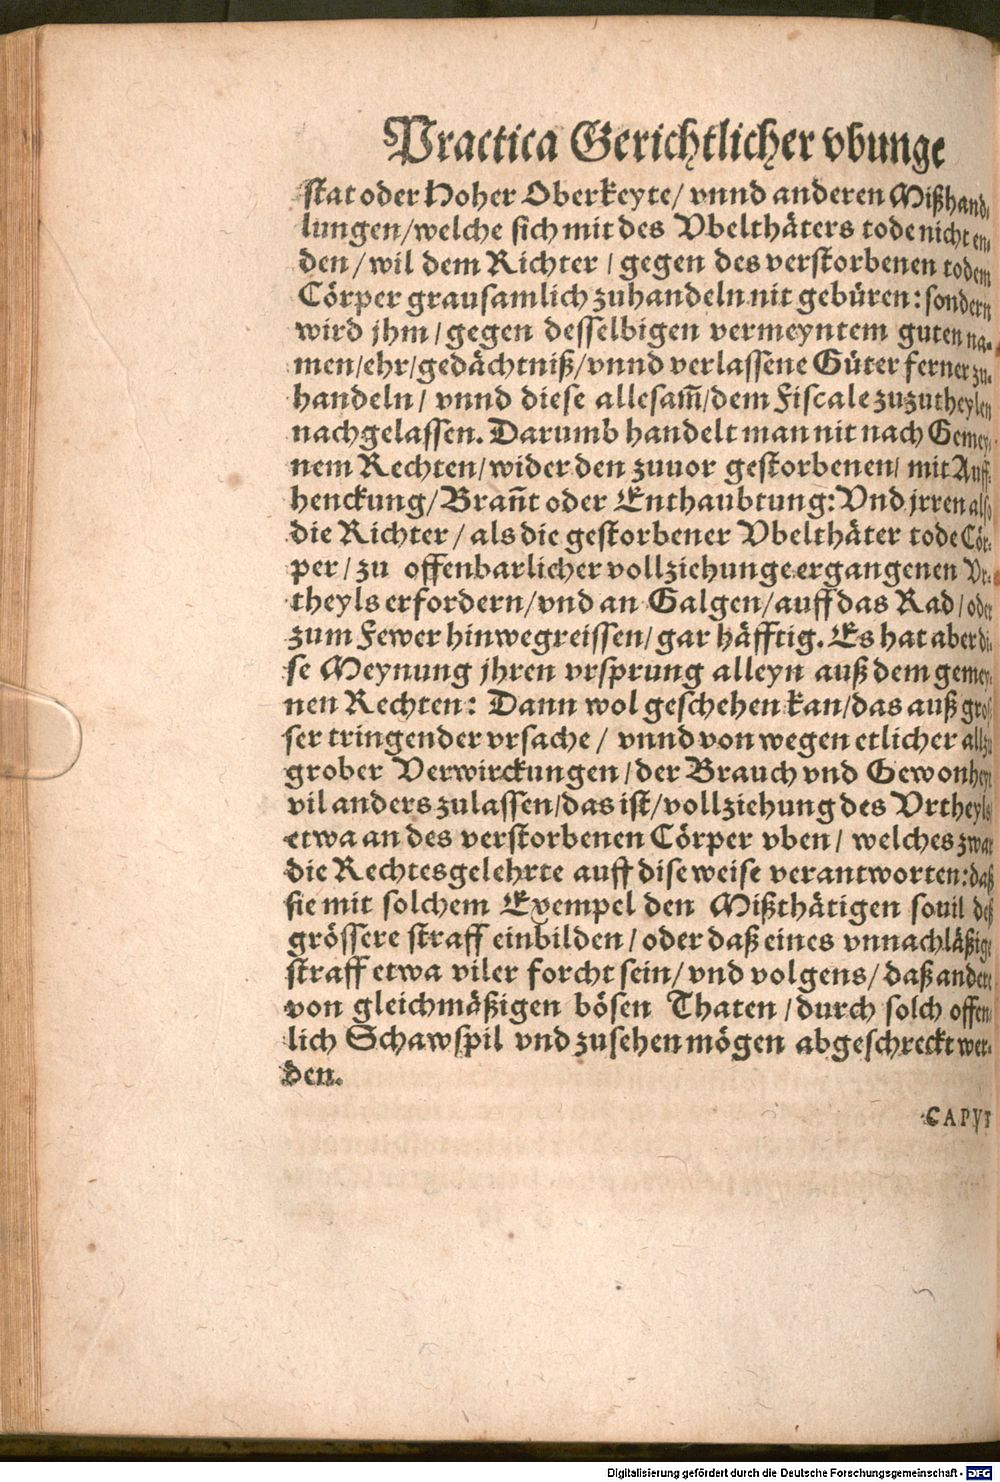 Practica Gerichtlicher vbunge
stat oder Hoher Oberkeyte/ vnnd anderen Mißhand-
lungen/welche sich mit des Vbelthäters tode nicht en-
den/ wil dem Richter/ gegen des verstorbenen todem
Cörper grausamlich zuhandeln nit gebüren: sondern
wird jhm/ gegen desselbigen vermeyntem guten na-
men/ehr/gedächtniß/vnnd verlassene Güter ferner zu-
handeln/ vnnd diese allesam̃/dem Fiscale zuzutheylen
nachgelassen. Darumb handelt man nit nach Gemey-
nem Rechten/wider den zuuor gestorbenen/ mit Auff-
henckung/Brañt oder Enthaubtung: Vnd jrren also
die Richter/ als die gestorbener Vbelthäter tode Cör-
per/ zu offenbarlicher vollziehunge ergangenen Vr-
theyls erfordern/vnd an Galgen/auff das Rad/oder
zum Fewer hinwegreissen/gar häfftig. Es hat aber di-
se Meynung jhren vrsprung alleyn auß dem gemey-
nen Rechten: Dann wol geschehen kan/das auß gros-
ser tringender vrsache/ vnnd von wegen etlicher allzu
grober Verwirckungen/der Brauch vnd Gewonheyt
vil anders zulassen/das ist/vollziehung des Vrtheyls
etwa an des verstorbenen Cörper vben/ welches zwar
die Rechtesgelehrte auff dise weise verantworten: daß
sie mit solchem Exempel den Mißthätigen souil deß
grössere straff einbilden/oder daß eines vnnachläßige
straff etwa viler forcht sein/vnd volgens/daß andere
von gleichmäßigen bösen Thaten/durch solch offen-
lich Schawspil vnd zusehen mögen abgeschreckt wer-
den.
CAPVT
Digitalisierung gefördert durch die Deutsche Forschungsgemeinschaft - DFG